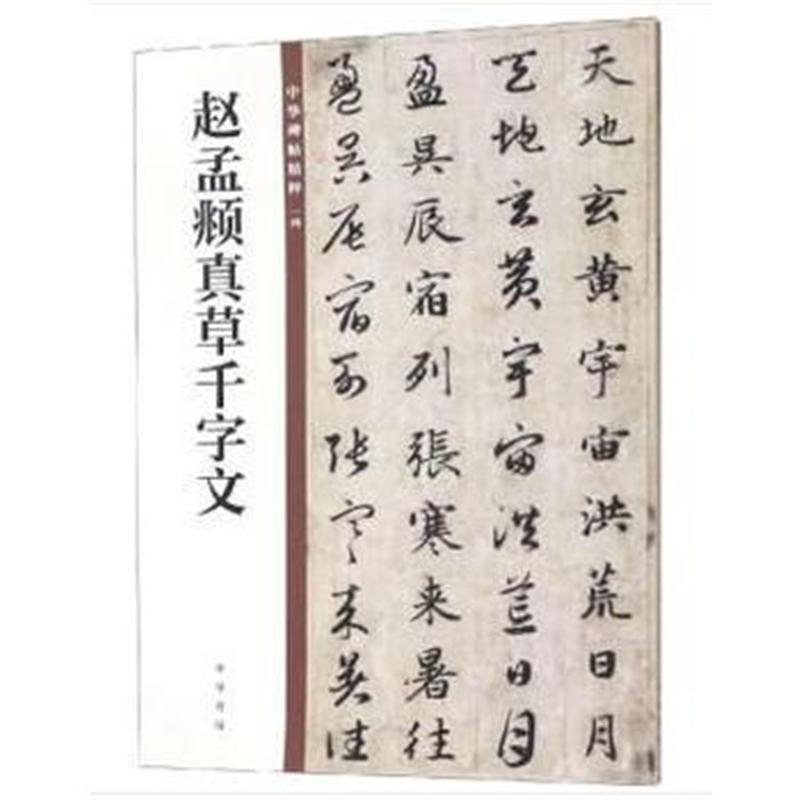 赵孟𫖯真草千字文
中华碑帖精粹
中华书局
天地玄黄宇宙洪荒日月
天地玄黄宇宙洪荒日月
盈昃辰宿列張寒来暑往
盈昃辰宿列張寒来暑往